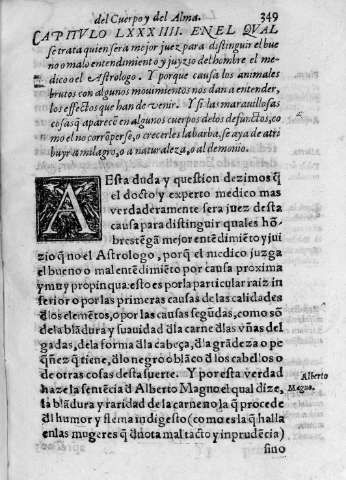 del Cuerpo y del Alma. 349
CAPITVLO LXXXIIII. EN EL QVAL
se trata quien sera mejor juez para distinguir el bue
no o malo entendimiento y juyzio del hombre el me
dico o el Astrologo. Y porque causa los animales
brutos con algunos mouimientos nos dan a entender,
los effectos que han de venir. Y si las marauillosas
cosas q̃ aparecē en algunos cuerpos delos defunctos, co
mo el no corrōperse, o crecerles la barba, se aya de atri
buyr a milagro, o a naturaleza, o al demonio.
A Esta duda y question dezimos q̃
el docto y experto medico mas
verdaderamente sera juez desta
causa para distinguir quales hō-
bres tēgã mejor entēdimiēto y jui
zio q̃ no el Astrologo, porq̃ el medico juzga
el bueno o mal entēdimiēto por causa proxima
y muy propinqua: esto es por la particular raiz in
ferior o por las primeras causas de las calidades
d̃ los elemētos, o por las causas segūdas, como sō
de la blãdura y suauidad d̃ la carne d̃ las vñas del
gadas, de la forma d̃ la cabeça, d̃ la grãdeza o pe
q̃ñez q̃ tiene, d̃ lo negro o blãco d̃ los cabellos o
de otras cosas desta suerte. Y por esta verdad
haze la sentēcia d̃ Alberto Magno el qual dize,
Alberto
Magno.
la blãdura y raridad de la carne no la q̃ procede
d̃l humor y flema indigesto (como es la q̃ halla
en las mugeres q̃ d̃nota mal tacto y inprudēcia)
sino